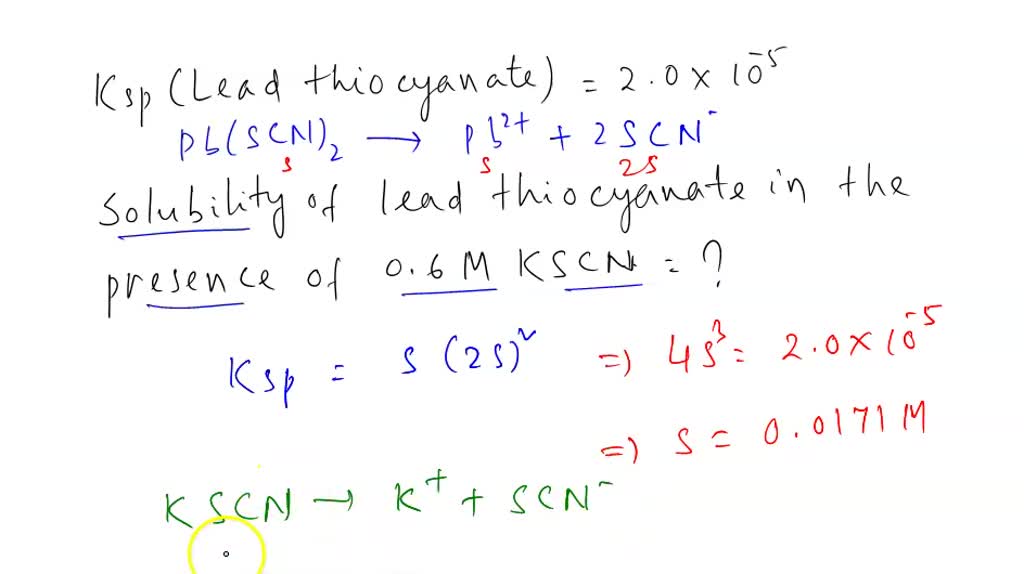 Ksp (Lead thiocyanate) = 2.0 x 10⁻⁵
Pb(SCN)₂ → Pb²⁺ + 2SCN⁻
s s 2s
Solubility of lead thiocyanate in the
presence of 0.6 M KSCN = ?
Ksp = s (2s)² => 4s³ = 2.0 x 10⁻⁵
=> s = 0.0171 M
KSCN → K⁺ + SCN⁻